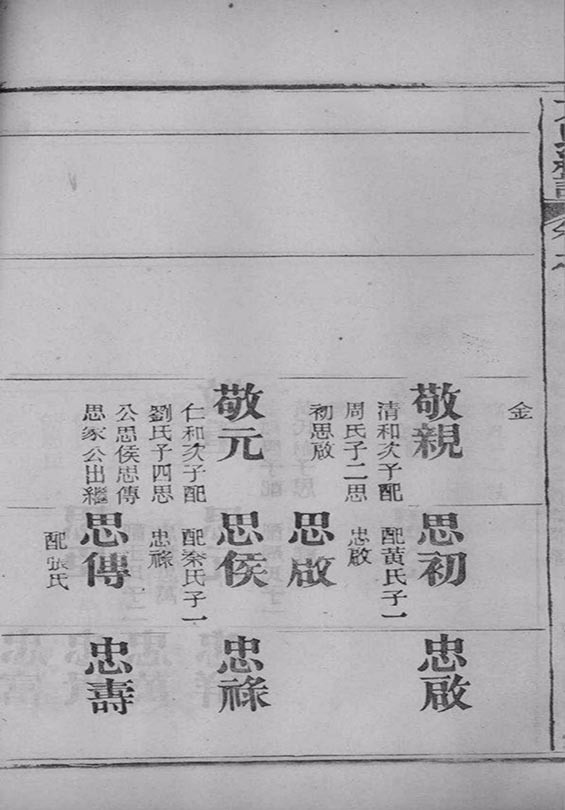 金
敬親
清和次子配
周氏子二思
初思啟
敬元
仁和次子配
劉氏子四思
公思侯思傳
思家公出繼
思初
配黃氏子一
忠啟
思啟
思侯
配秦氏子一
忠祿
思傳
配張氏
忠啟
忠祿
忠壽